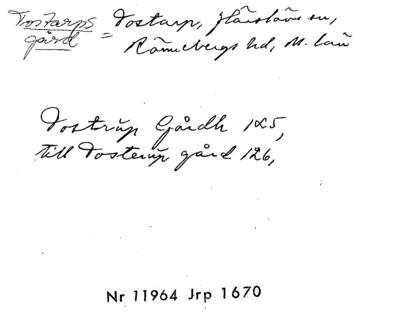 Tostarps gård = Tostarp, Härslövs sn,
Rönnebergs hd, M. län
Tostrŭp Gårdh 125,
till Tosterŭp gård 126,
Nr 11964 Jrp 1670